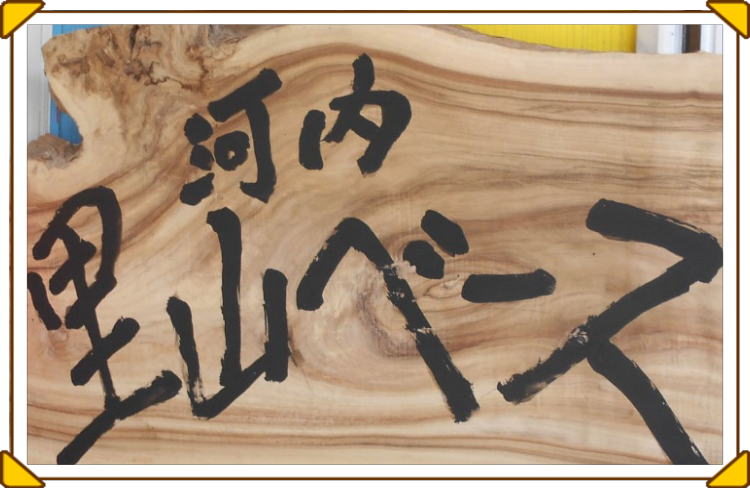 河内
里山ベース